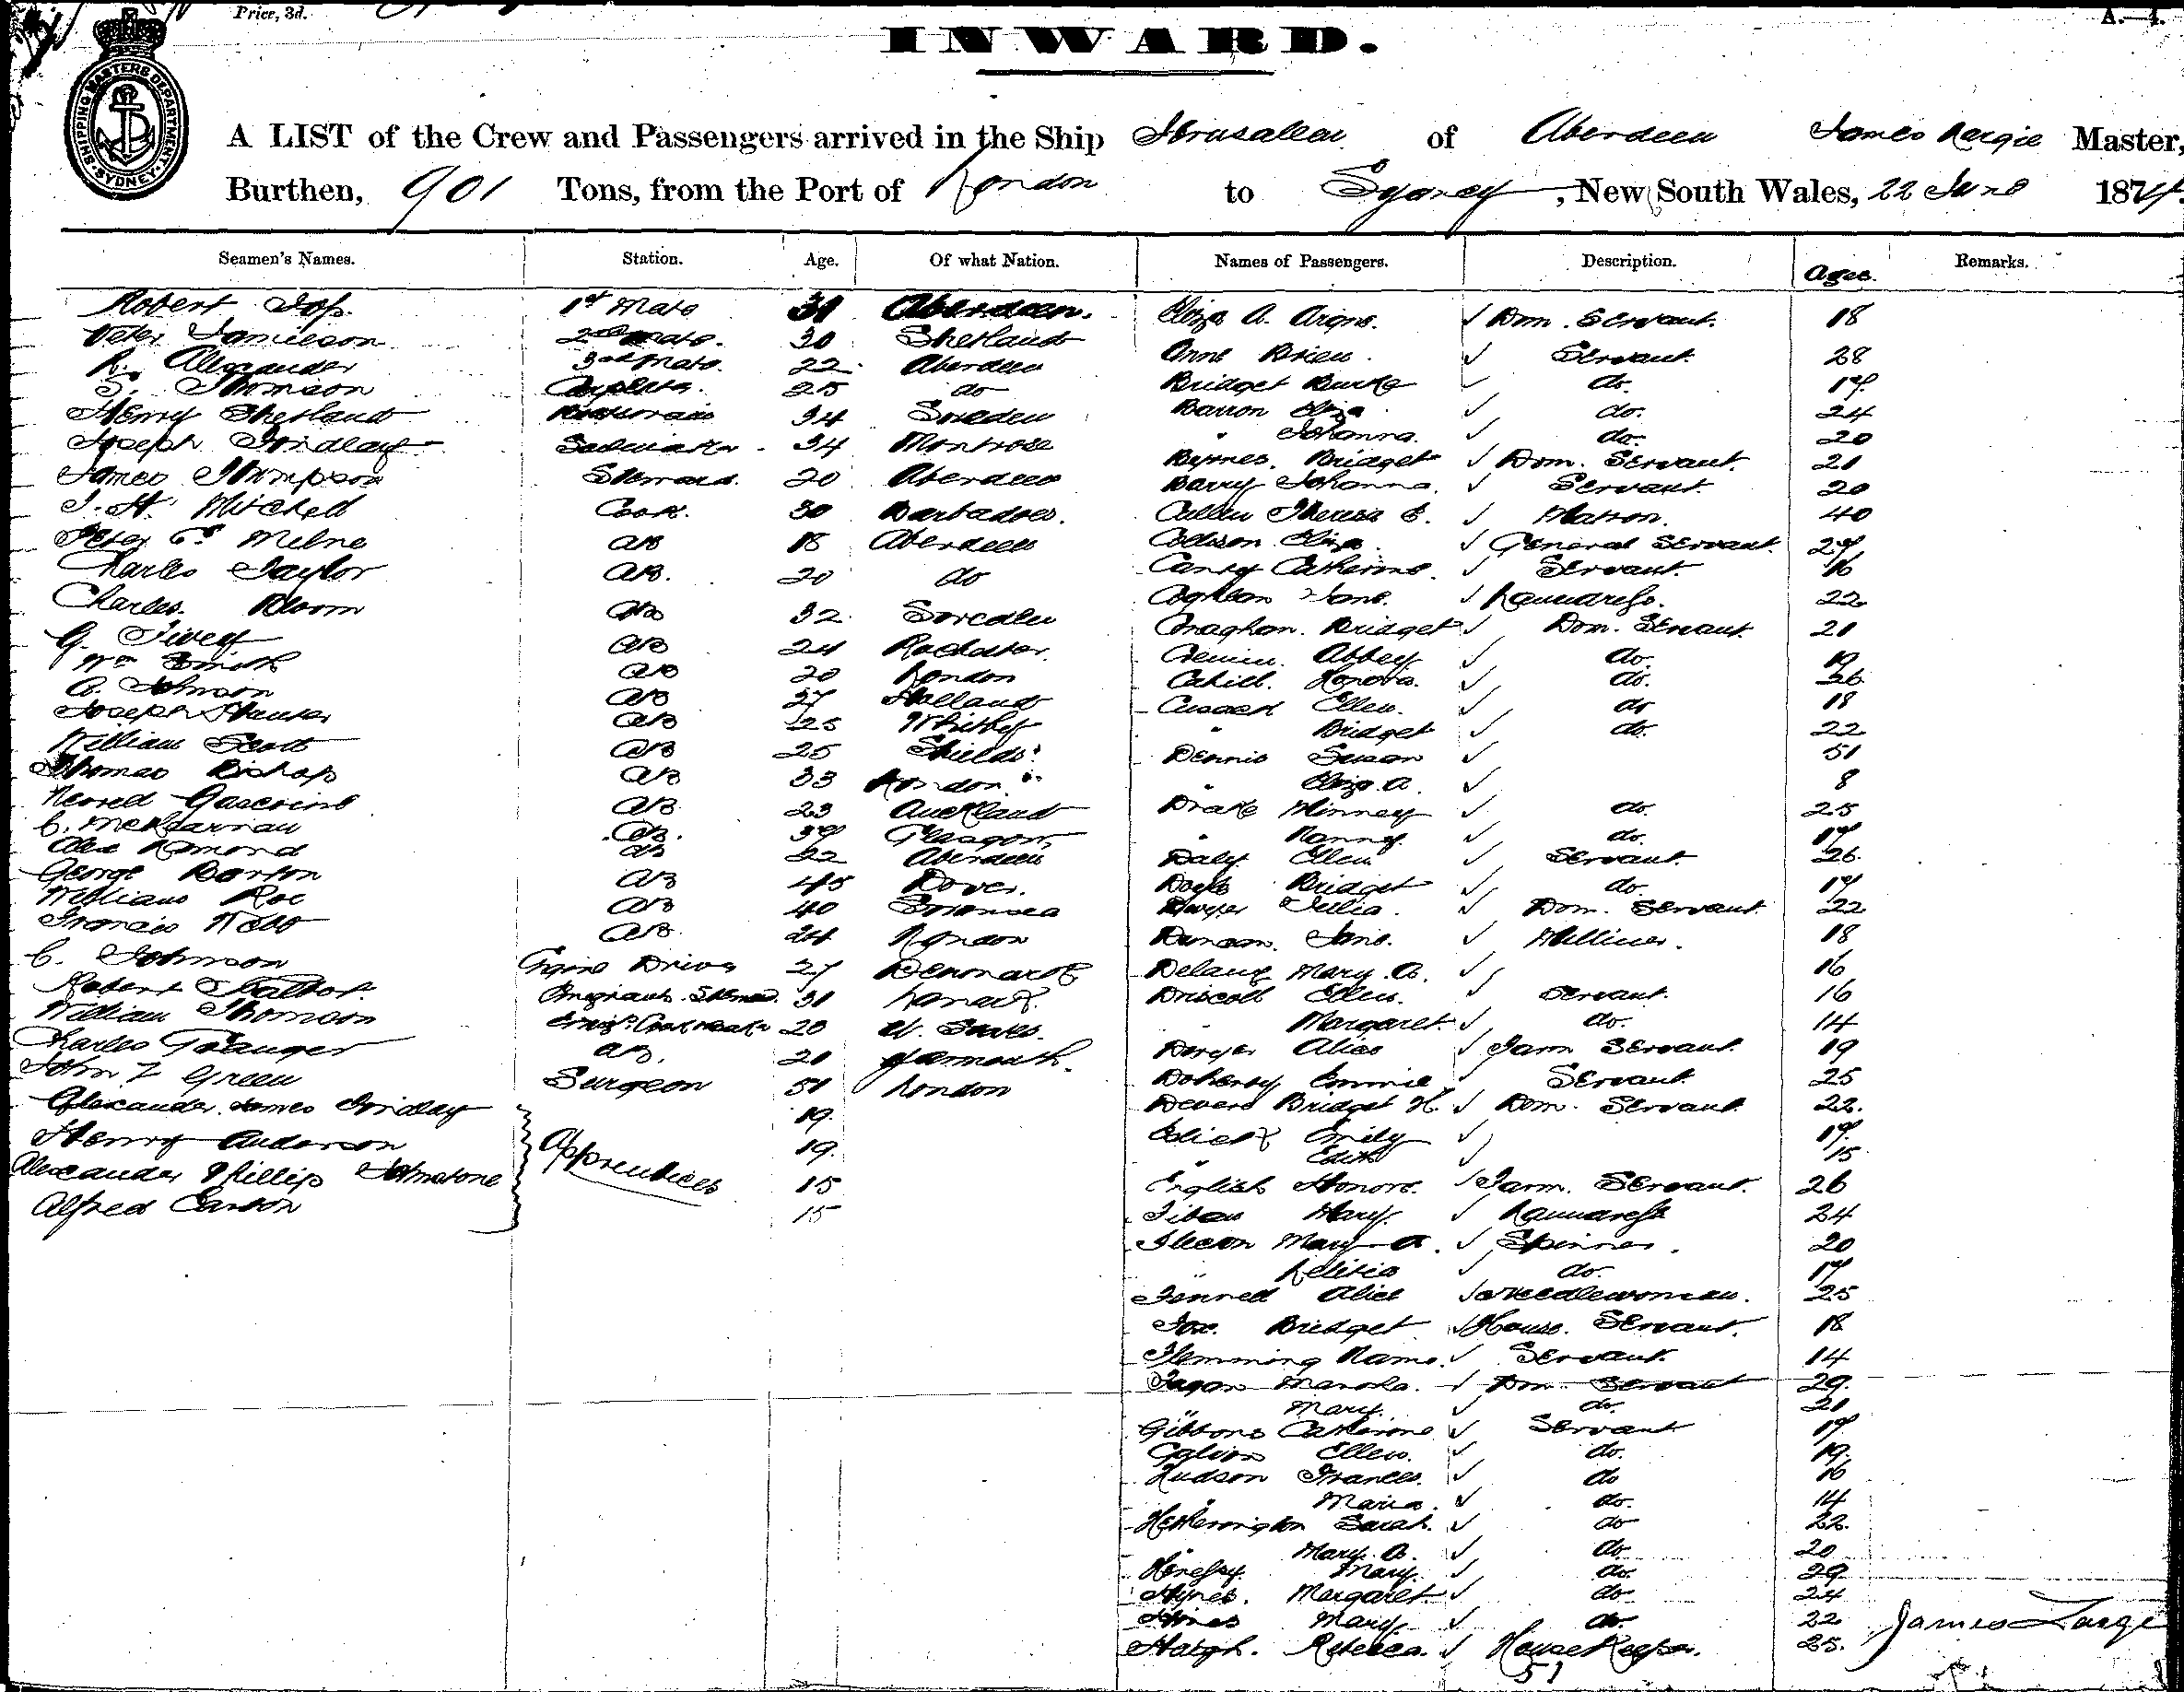 Price, 3d.
A.—4.
SHIPPING MASTERS DEPARTMENT
SYDNEY
INWARD.
A LIST of the Crew and Passengers arrived in the Ship Jerusallem of Aberdeen James Largie Master,
Burthen, 901 Tons, from the Port of London to Sydney, New South Wales, 22 June 1874.
Seamen's Names. Station. Age. Of what Nation. Names of Passengers. Description. Ages. Remarks.
Robert 1st Mate 31 Aberdeen.
Peter Jamieson 2nd Mate. 30 Shetland
R. Alexander 3rd Mate. 22 Aberdeen
S. Thomson 25 do
Henry Shetland 34 Sweden
Joseph Findlay 34 Montrose
James Thompson Steward. 20 Aberdeen
J. H. Mitchell Cook. 30 Barbadoes.
Peter Milne AB 18 Aberdeen
Charles Taylor AB. 20 do
Charles Bloom AB 32 Sweden
G. Tivey AB 24 Rochester.
Wm Smith AB 20 London
A. Johnson AB 27 Holland
Joseph Hunter AB 25 Whitby
William Scott AB 25 Shields
Thomas Bishop AB 33 London
Gascoine AB 23 Auckland
C. AB. Glasgow
Alex AB 22 Aberdeen
George Barton AB 45 Dover.
William Roe AB 40 Swansea
Francis Webb AB. 24 London
C. Johnson Engine Driver 27 Denmark
Robert Talbot. 31 Lanark.
William Thomson 20 U. States.
Charles Granger AB. 20 Yarmouth.
John Z Green Surgeon 51 London
Alexander James Findlay 19.
Henry Anderson Apprentices 19.
Alexander Phillip Johnstone 15
Alfred Canton 15
Eliza A. ✓ Dom. Servant. 18
Anne Brien. ✓ Servant. 28
Bridget Burke ✓ do. 17.
Barron Eliza ✓ do. 24
" Johanna. ✓ do. 20
Byrnes. Bridget ✓ Dom. Servant. 21
Barry Johanna. ✓ Servant. 20
Cullen Theresa C. ✓ Matron. 40
Collison Eliza. ✓ General Servant. 27
Catherine. ✓ Servant. 16
Coghlan Jane. ✓ Laundress. 22
Bridget ✓ Dom. Servant. 21
Abbey. ✓ do. 19
Cahill. Honora. ✓ do. 26
Cusack Ellen. ✓ do 18
" Bridget ✓ do. 22
Dennis Susan ✓ 51
" Eliza A. ✓ 8
Drake Minney ✓ do. 25
" Nanny. ✓ do. 17
Daly Ellen ✓ Servant. 26.
Doyle Bridget ✓ do. 17
Dwyer Julia. ✓ Dom. Servant. 22
Duncan. Jane. ✓ Milliner. 18
Delany Mary A. ✓ 16
Driscoll Ellen. ✓ Servant. 16
" Margaret. ✓ do. 14
Dwyer Alice ✓ Farm Servant. 19
Doherty Emmie ✓ Servant. 25
Devere Bridget H. ✓ Dom. Servant. 22.
Emily ✓ 17.
" Edith ✓ 15
English Honora. ✓ Farm. Servant. 26
Mary. ✓ Laundress 24
Mary A. ✓ Spinner. 20
" Letitia ✓ do. 17
Fennell Alice ✓ Needlewoman. 25
Fox. Bridget ✓ House. Servant. 18
Flemming ✓ Servant. 14
Fagan ✓ Dom. Servant 29.
" Mary. ✓ do. 21
Gibbons Catherine ✓ Servant 17
Galvin Ellen. ✓ do. 19.
Hudson Frances. ✓ do 16
" Maria. ✓ do. 14
Hetherington Sarah. ✓ do 22.
" Mary A. ✓ do 20
Mary. ✓ do. 29
Hynes. Margaret ✓ do 24
Hines Mary ✓ do. 22
Haigh. Rebecca. ✓ House Keeper. 25.
James Large
51